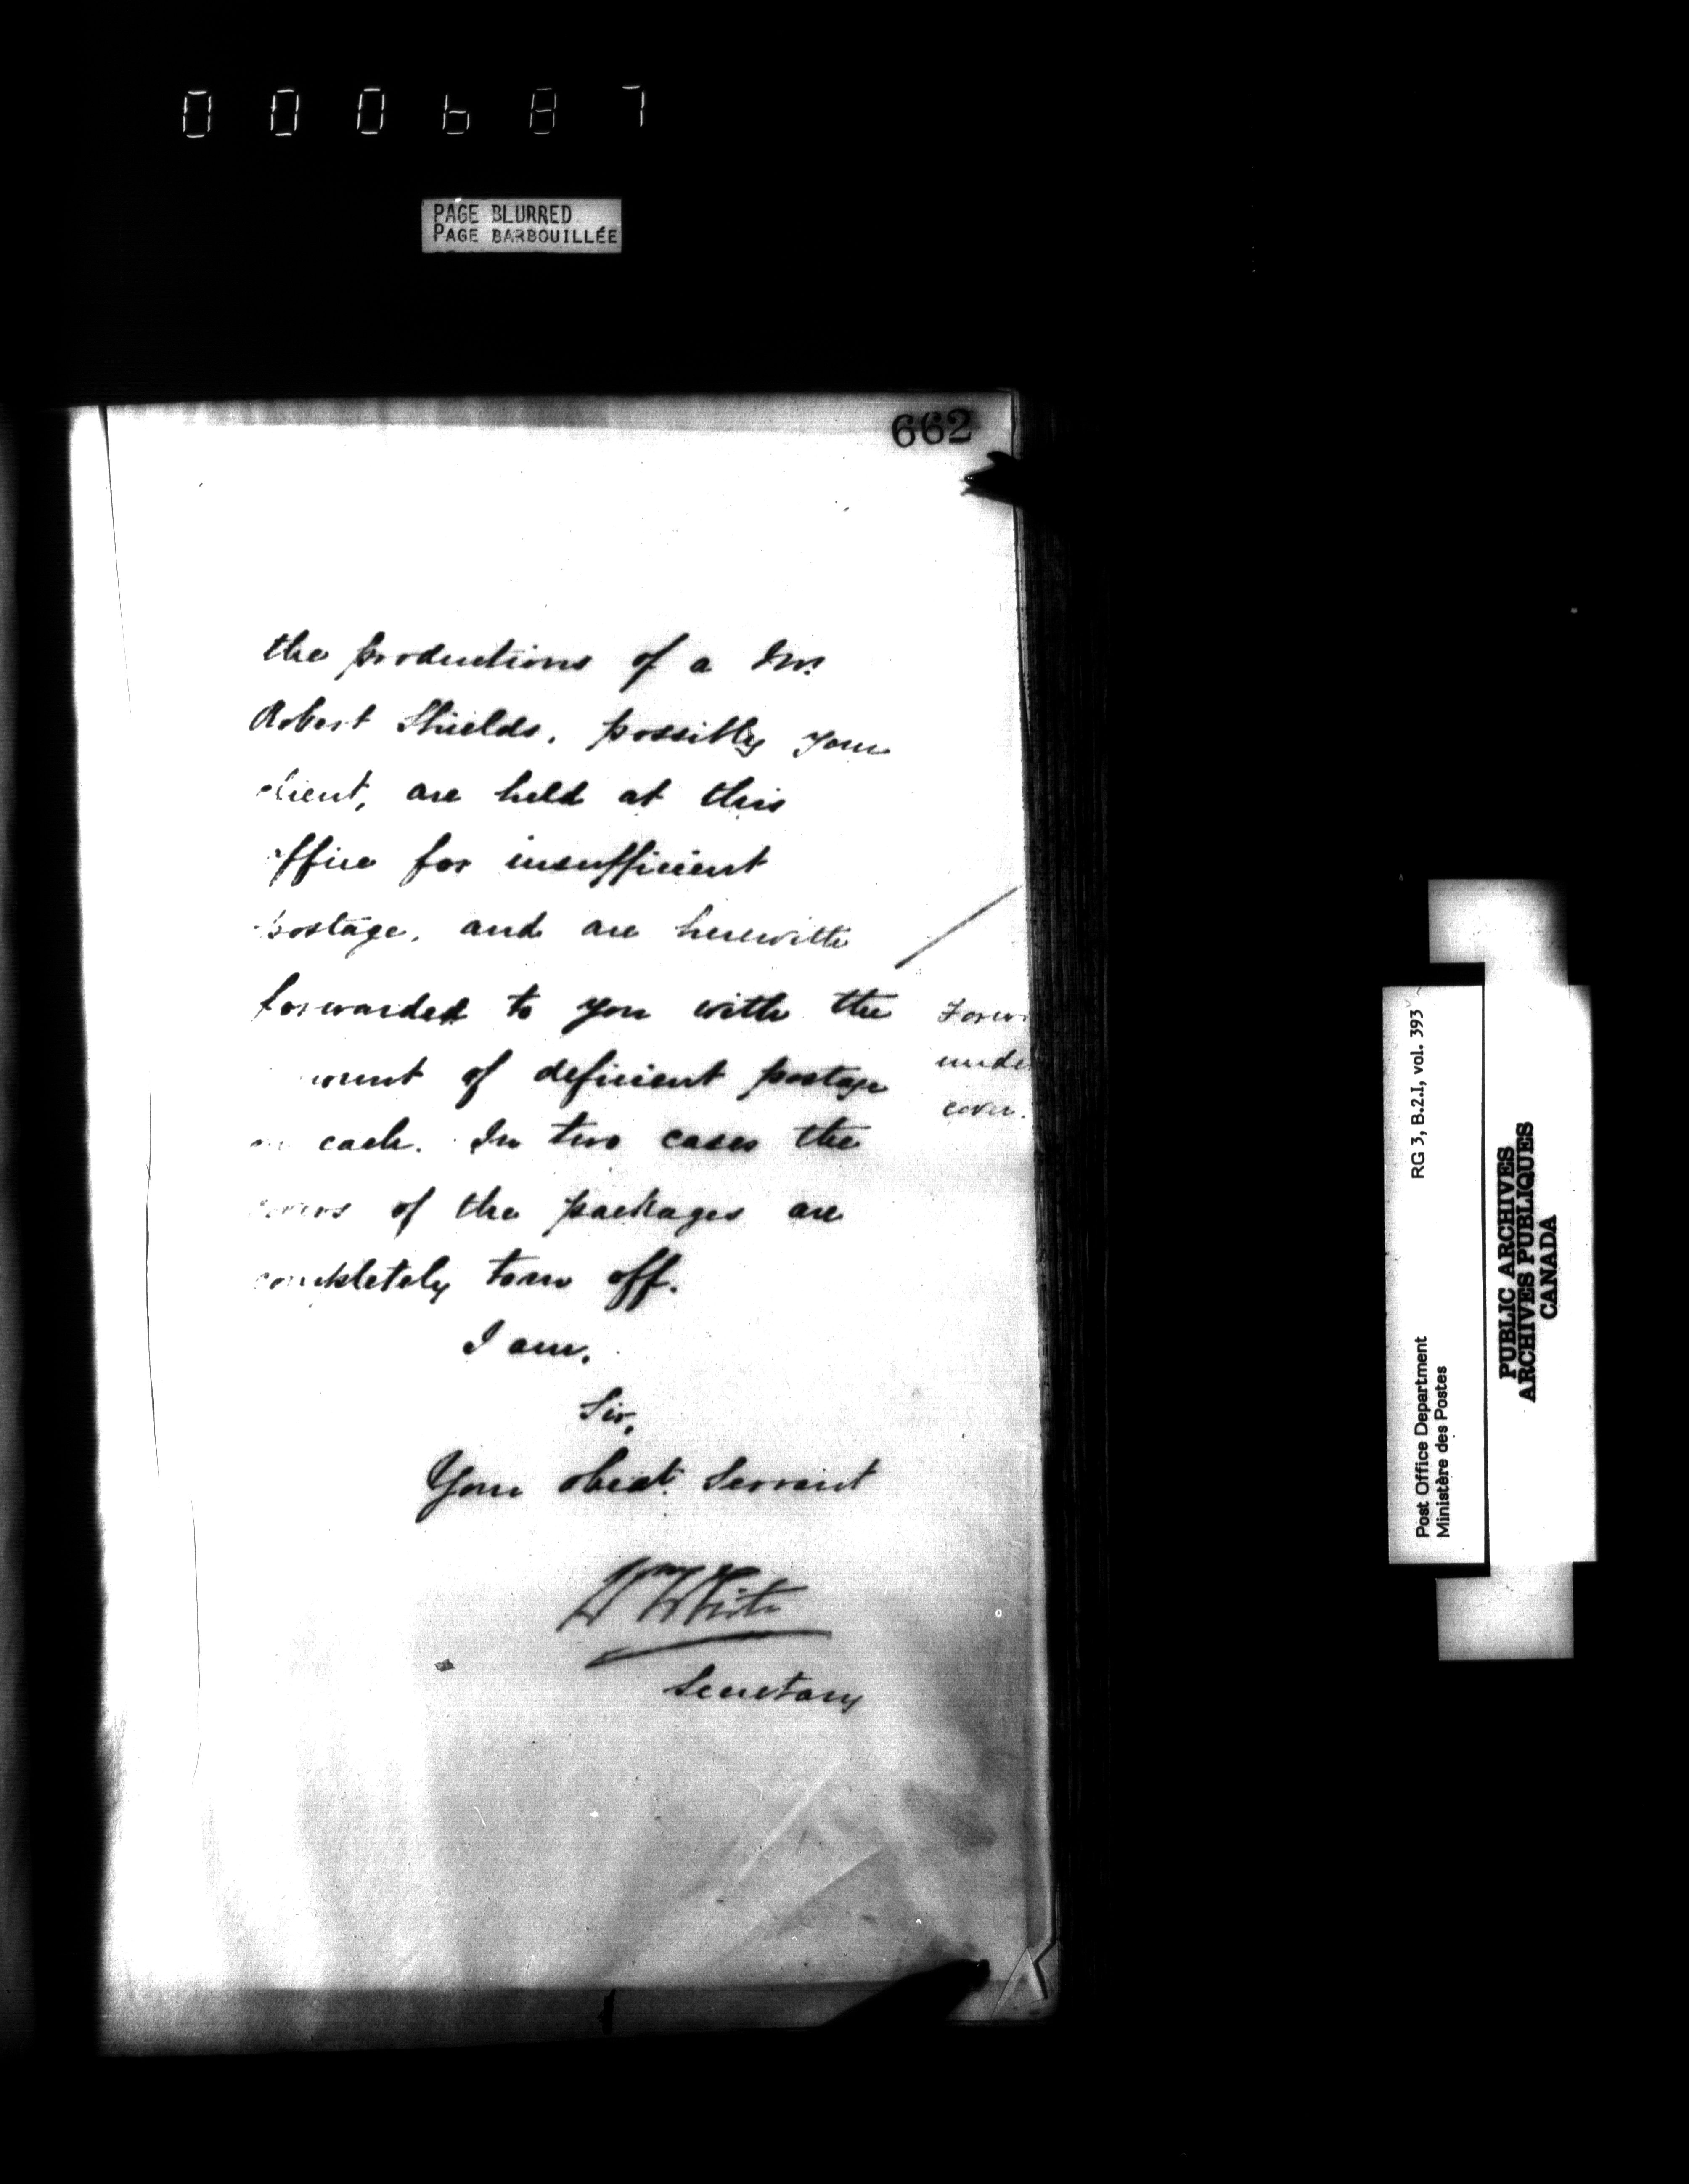 000687
PAGE BLURRED
PAGE BARBOUILLÉE
662
the productions of a Mr.
Robert Shields, possibly your
client, are held at this
office for insufficient
postage, and are herewith
forwarded to you with the
amount of deficient postage
on each. In two cases the
covers of the packages are
completely torn off.
I am,
Sir,
Your obedt. Servant
Wm White
Secretary
Forw
unde
cover.
RG 3, B.2.I, vol. 393
Post Office Department
Ministère des Postes
PUBLIC ARCHIVES
ARCHIVES PUBLIQUES
CANADA